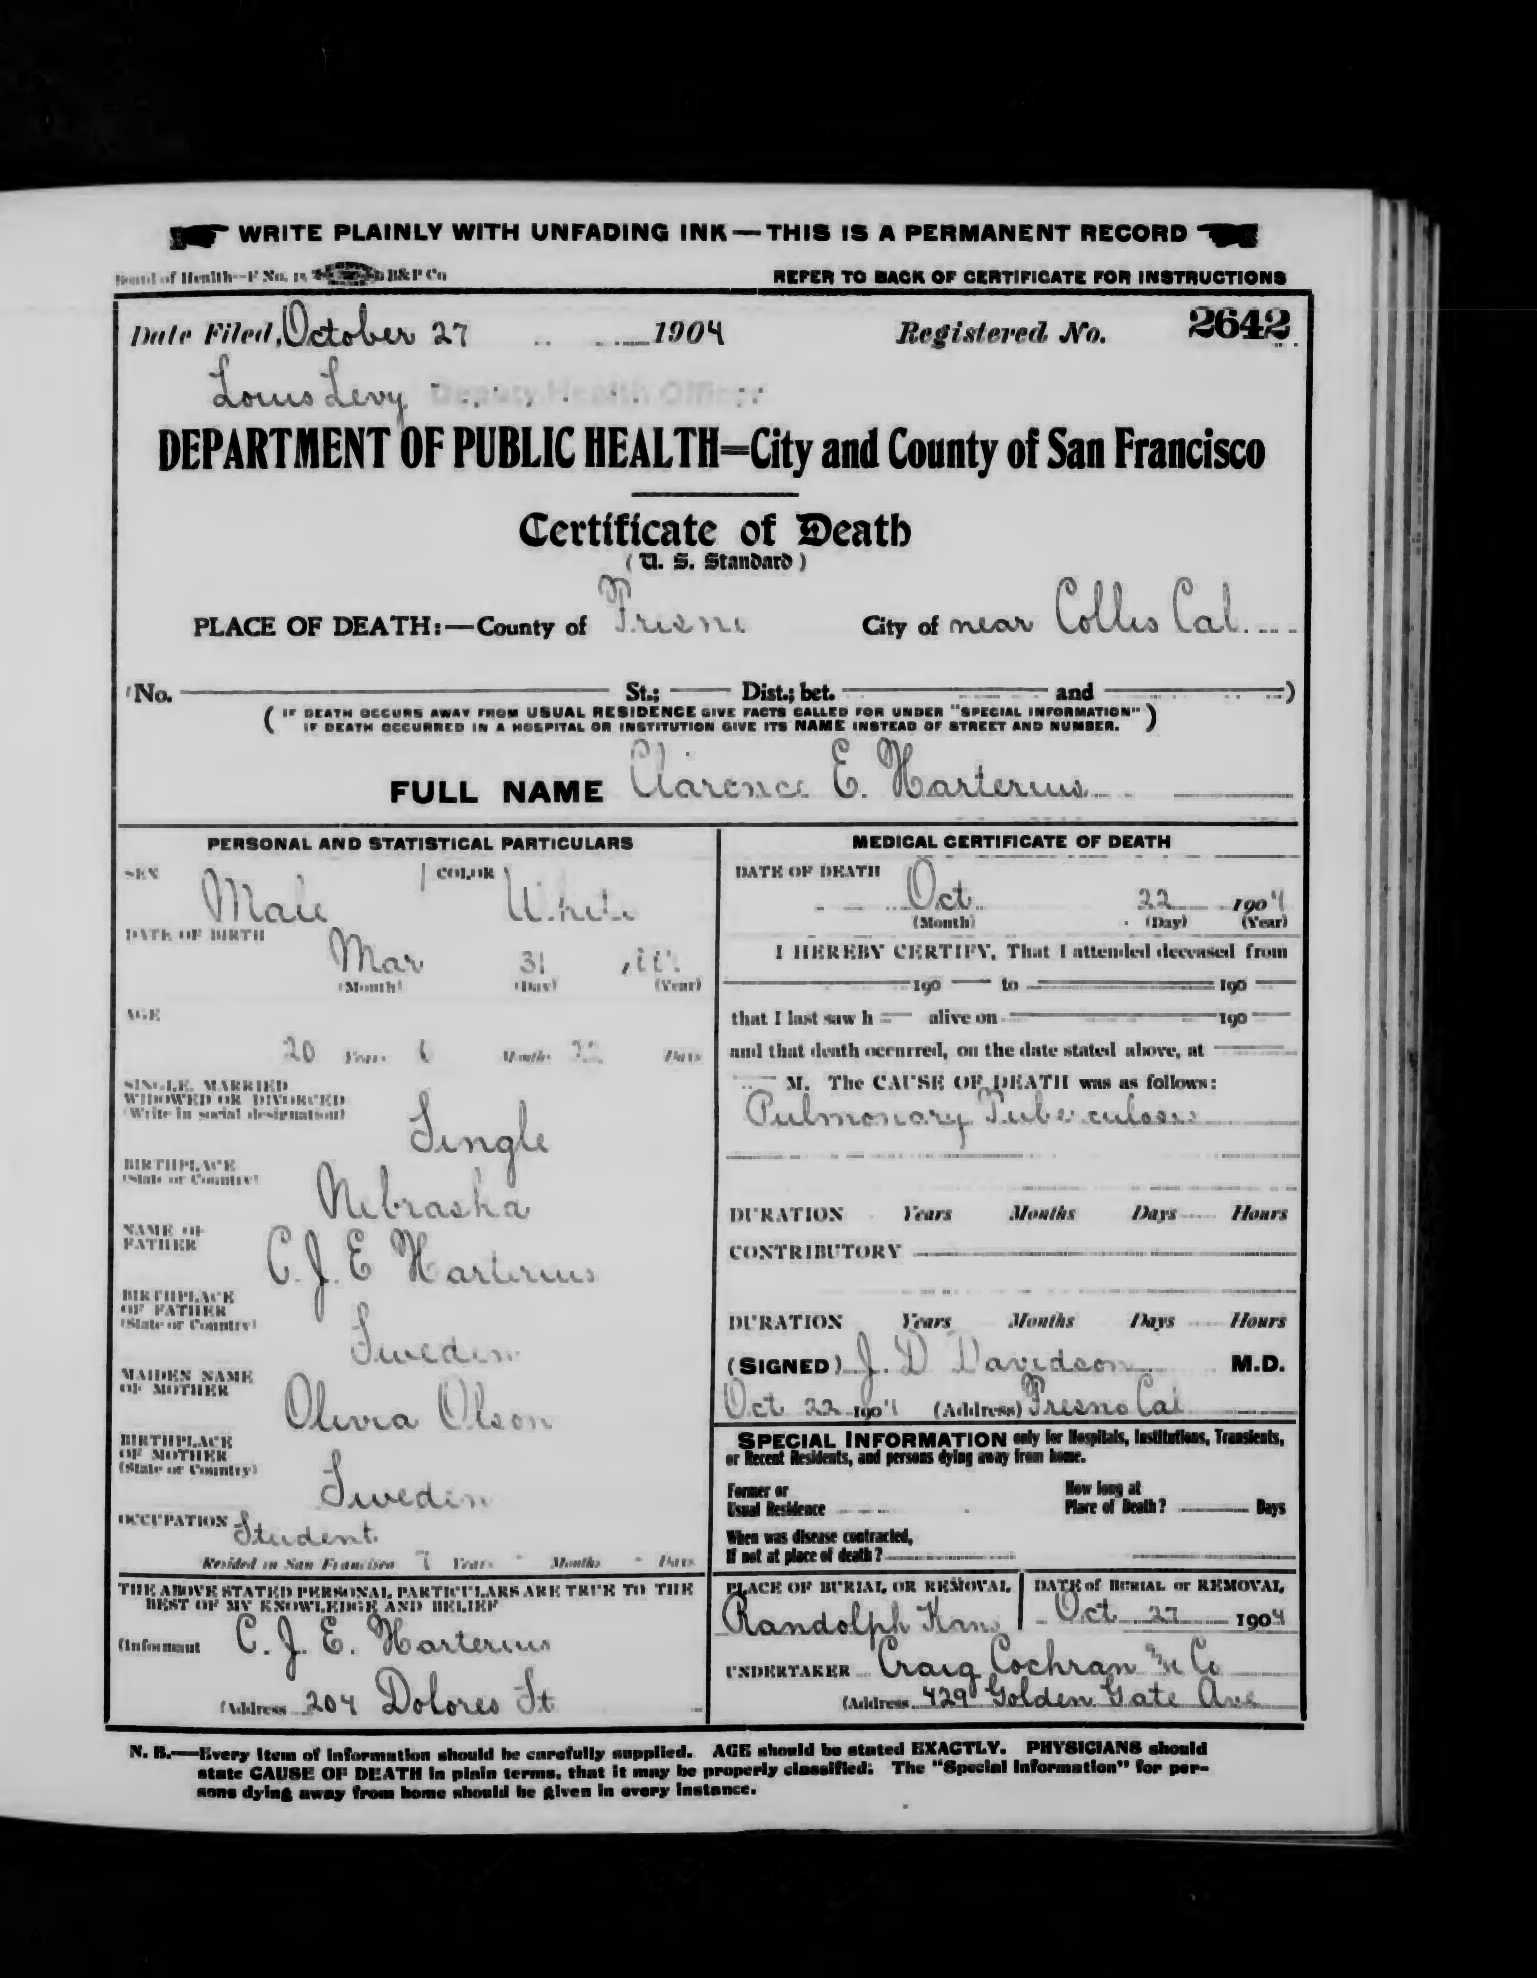 WRITE PLAINLY WITH UNFADING INK — THIS IS A PERMANENT RECORD
Board of Health—F No. B&P Co REFER TO BACK OF CERTIFICATE FOR INSTRUCTIONS
Date Filed, October 27 1904 Registered No. 2642
Louis Levy Deputy Health Officer
DEPARTMENT OF PUBLIC HEALTH=City and County of San Francisco
Certificate of Death
(U. S. Standard)
PLACE OF DEATH:—County of Fresno City of near Collis Cal.
(No. St.; Dist.; bet. and )
( IF DEATH OCCURS AWAY FROM USUAL RESIDENCE GIVE FACTS CALLED FOR UNDER "SPECIAL INFORMATION" )
IF DEATH OCCURRED IN A HOSPITAL OR INSTITUTION GIVE ITS NAME INSTEAD OF STREET AND NUMBER.
FULL NAME Clarence E. Harterius
PERSONAL AND STATISTICAL PARTICULARS
SEX Male COLOR White
DATE OF BIRTH Mar 31
(Month) (Day) (Year)
AGE
20 Years 6 Months 22 Days
SINGLE, MARRIED
WIDOWED OR DIVORCED
(Write in social designation) Single
BIRTHPLACE
(State or Country) Nebraska
NAME OF
FATHER C. J. E Harterius
BIRTHPLACE
OF FATHER
(State or Country) Sweden
MAIDEN NAME
OF MOTHER Olivia Olson
BIRTHPLACE
OF MOTHER
(State or Country) Sweden
OCCUPATION Student
Resided in San Francisco 7 Years - Months - Days
THE ABOVE STATED PERSONAL PARTICULARS ARE TRUE TO THE
BEST OF MY KNOWLEDGE AND BELIEF
(Informant C. J. E. Harterius
(Address 204 Dolores St
MEDICAL CERTIFICATE OF DEATH
DATE OF DEATH
Oct 22 1904
(Month) (Day) (Year)
I HEREBY CERTIFY, That I attended deceased from
190 to 190
that I last saw h alive on 190
and that death occurred, on the date stated above, at
M. The CAUSE OF DEATH was as follows:
Pulmonary Tuberculosis
DURATION Years Months Days Hours
CONTRIBUTORY
DURATION Years Months Days Hours
(SIGNED) J. D Davidson M.D.
Oct 22 1904 (Address) Fresno Cal
SPECIAL INFORMATION only for Hospitals, Institutions, Transients,
or Recent Residents, and persons dying away from home.
Former or How long at
Usual Residence Place of Death? Days
When was disease contracted,
If not at place of death?
PLACE OF BURIAL OR REMOVAL DATE of BURIAL or REMOVAL
Randolph Kans Oct 27 1904
UNDERTAKER Craig Cochran & Co
(Address 429 Golden Gate Ave
N. B.—Every item of information should be carefully supplied. AGE should be stated EXACTLY. PHYSICIANS should
state CAUSE OF DEATH in plain terms, that it may be properly classified. The "Special Information" for per-
sons dying away from home should be given in every instance.